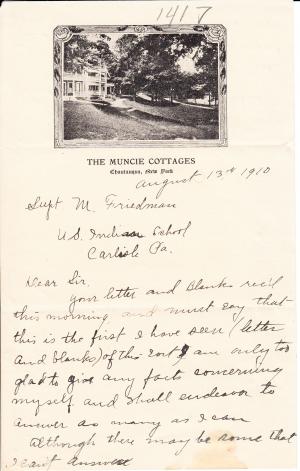 1417
THE MUNCIE COTTAGES
Chautauqua, New York
August 13th 1910
Supt M. Friedman
U.S. Indian School
Carlisle Pa.
Dear Sir.
Your letter and blanks rec'd
this morning and must say that
this is the first I have seen (letter
and blanks) of the sort I am only too
glad to give any facts concerning
myself and shall endeavor to
answer as many as I can
Although there may be some that
I can't answer